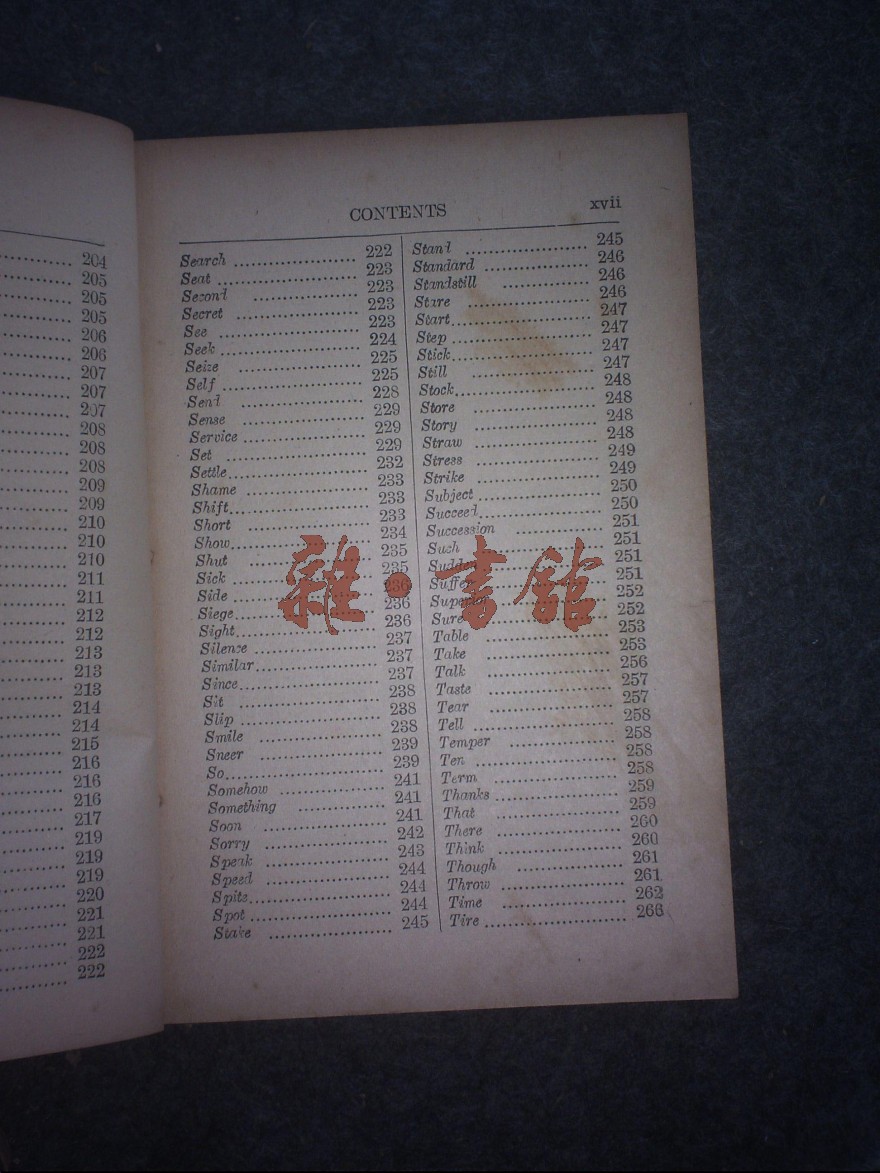 204
205
205
205
206
206
207
207
207
208
208
208
209
209
210
210
210
211
211
212
212
213
213
213
214
214
215
216
216
216
217
219
219
219
220
221
221
222
222
CONTENTS xvii
Search 222
Seat 223
Second 223
Secret 223
See 223
Seek 224
Seize 225
Self 225
Send 228
Sense 229
Service 229
Set 229
Settle 232
Shame 233
Shift 233
Short 233
Show 234
Shut 235
Sick 235
Side 236
Siege 236
Sight 236
Silence 237
Similar 237
Since 237
Sit 238
Slip 238
Smile 238
Sneer 239
So 239
Somehow 241
Something 241
Soon 241
Sorry 242
Speak 243
Speed 244
Spite 244
Spot 244
Stake 245
Stand 245
Standard 246
Standstill 246
Stare 246
Start 247
Step 247
Stick 247
Still 247
Stock 248
Store 248
Story 248
Straw 248
Stress 249
Strike 249
Subject 250
Succeed 250
Succession 251
Such 251
Sudden 251
Suffer 251
Superior 252
Sure 252
Table 253
Take 253
Talk 256
Taste 257
Tear 257
Tell 258
Temper 258
Ten 258
Term 258
Thanks 259
That 259
There 260
Think 260
Though 261
Throw 261
Time 262
Tire 266
雜·書館